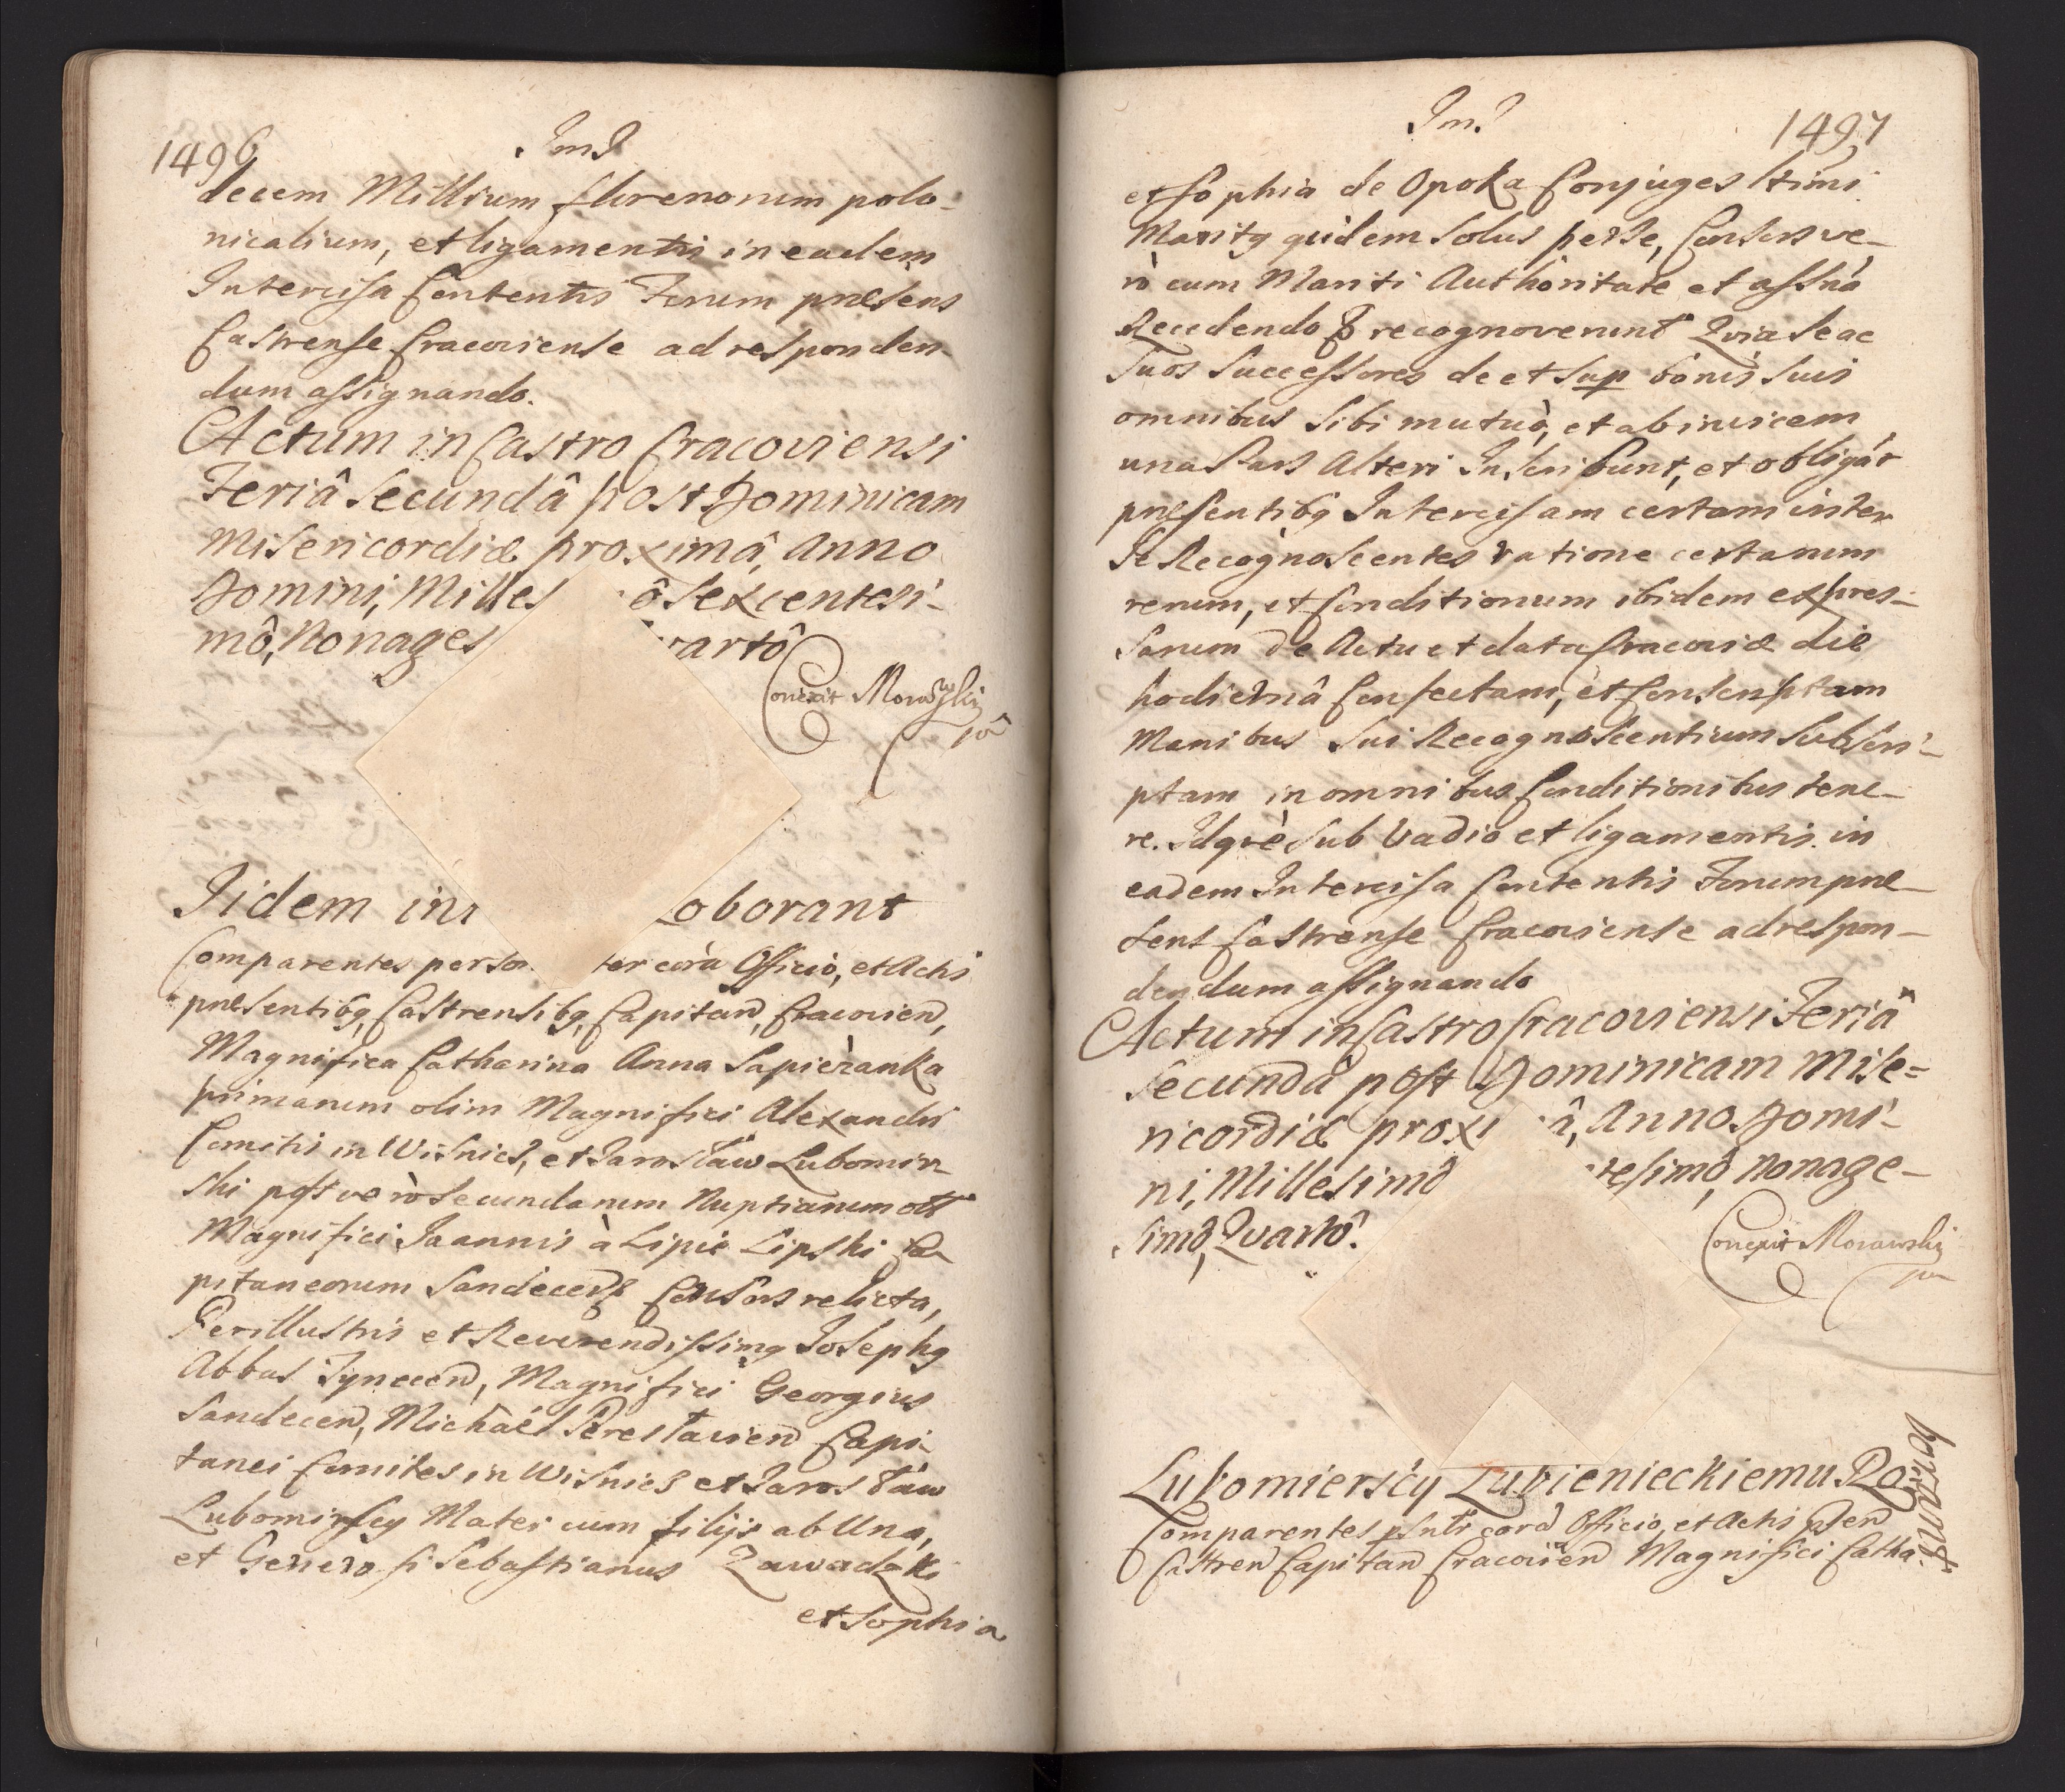 1496
decem Millium florenorum polo-
nicalium, et ligamentis in eadem
Intercisa Contentis Forum præsens
Castrense Cracoviense ad responden-
dum assignando.
Actum in Castro Cracoviensi
Feriâ Secundâ post Dominicam
Misericordiæ proximâ, Anno
Domini, Milles ô Sexcentesi-
mô, Nonages vartô
Conexit Morawski
Iidem in oborant
Comparentes person ter corã Officio, et Actis
præsentibq, Castrensibq, Capitan, Cracovien,
Magnifica Catharina Anna Sapieżanka
primarum olim Magnifici Alexandri
Comitis in Wiśnicz, et Jarosław Lubomir-
ski post verò Secundarum Nuptiarum olt
Magnifici Joannis à Lipie Lipski Ca-
pitaneorum Sandecen Consors relicta,
Perillustris et Reverendissimq Josephq
Abbas Tynecen, Magnifici Georgius
Sandecen, Michaël Perestavien Capi-
tanei Comites in Wiśnicz et Jarosław
Lubomirscy Mater cum filijs ab Una,
et Generosi Sebastianus Zawadzki
et Sophia
1497
et Sophia de Opoka Conjuges ltimi
Maritq quidem Solus per se, Consors ve-
rò cum Mariti Authoritate et assña
Recedendo recognoverunt Quia Se ac
Suos Successores de et sup bonis Suis
omnibus Sibi mutuò, et ab invicem
una Pars Alteri Inscribunt, et obligât
præsentibq Intercisam certam inter
Se Recognoscentes ratione certarum
rerum, et Conditionum ibidem expres-
sarum De Actu et data Cracoviæ die
hodiernâ Confectam, et Conscriptam
Manibus Sui Recognoscentium Subscri-
ptam in omnibus Conditionibus tene-
re. Idquè sub Vadio et ligamentis in
eadem Intercisa Contentis Forum præ-
sens Castrense Cracoviense ad respon-
dendum assignando
Actum in Castro Cracoviensi Feriâ
Secundâ post Dominicam Mise-
ricordiæ proxi â, Anno Domi-
ni, Millesimô resimô, Nonage-
simô, Quartô.
Conexit Morawski
Lubomierscy Łubienieckiemu Ro
borant
Comparentes psntr corã Officio, et Actis psen
Castren Capitan Cracovien Magnifici Catha-